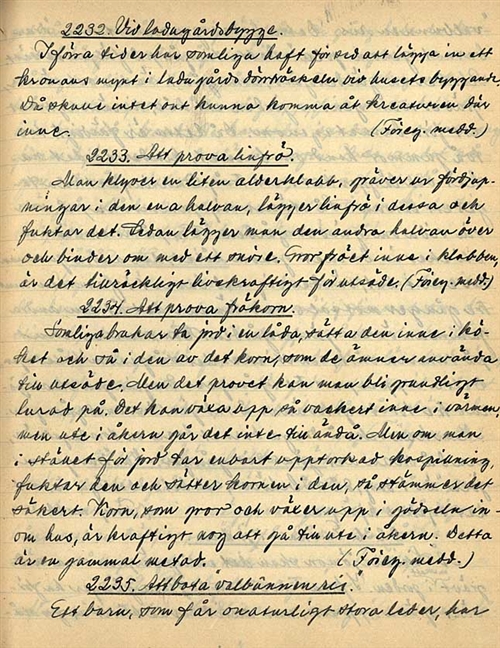 2232. Vid ladugårdsbygge.
I förra tider har somliga haft för sed att lägga in ett
kronans mynt i ladugårds dörrtröskeln vid husets byggande.
Då skulle intet ont kunna komma åt kreaturen där
inne. (Föreg. medd.)
2233. Att prova linfrö.
Man klyver en liten alderklabb, gräver ur fördjup-
ningar i den ena halvan, lägger linfrö i dessa och
fuktar det. Sedan lägger man den andra halvan över
och binder om med ett snöre. Gror fröet inne i klabben,
är det tillräckligt livskraftigt för utsäde. (Föreg. medd.)
2234. Att prova frökorn.
Somliga brukar ta jord i en låda, sätta den inne i kö-
ket och så i den av det korn, som de ämnar använda
till utsäde. Men det provet kan man bli grundligt
lurad på. Det kan växa upp så vackert inne i värmen,
men ute i åkern går det inte till ändå. Men om man
i stället för jord tar enbart upptorkad kospillning,
fuktar den och sätter kornen i den, så stämmer det
säkert. Korn, som gror och växer upp i gödseln in-
om hus, är kraftigt nog att gå till ute i åkern. Detta
är en gammal metod. (Föreg. medd.)
2235. Att bota "valbunnen ris."
Ett barn, som får onaturligt stora leder, har